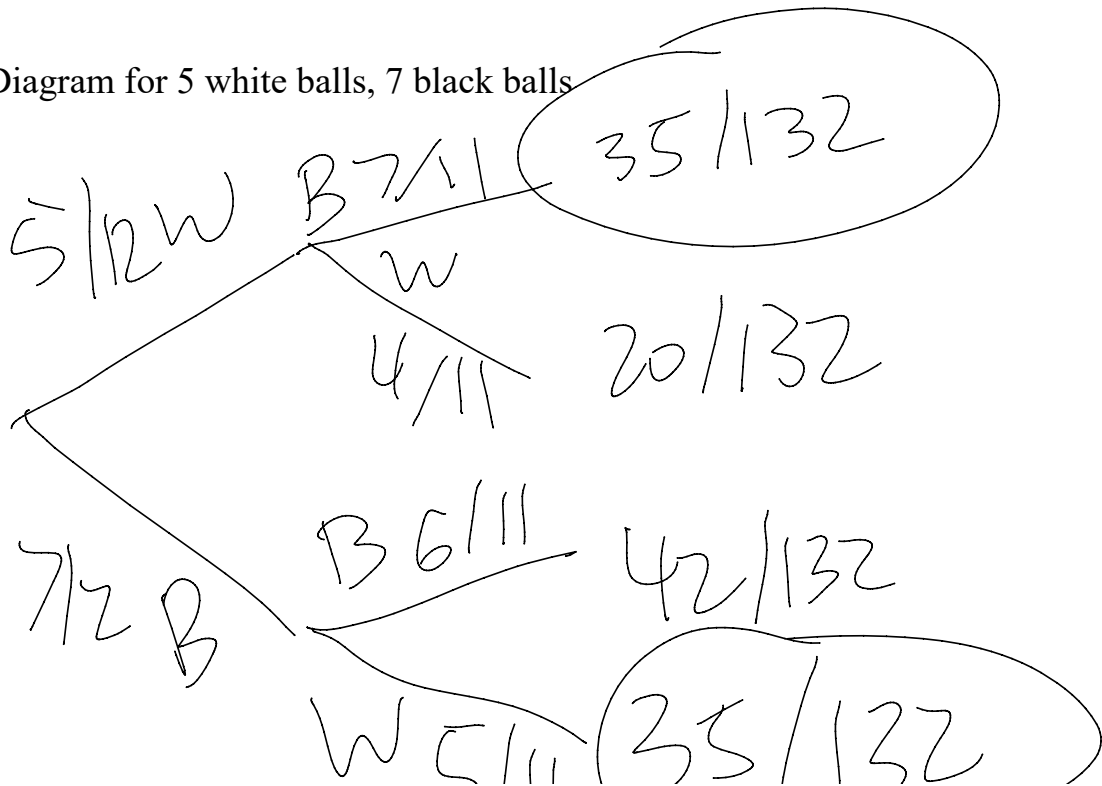 Diagram for 5 white balls, 7 black balls
35/132
B 7/11
5/12 W
W
4/11
20/132
B 6/11
42/132
7/2 B
W 5/11
35/132